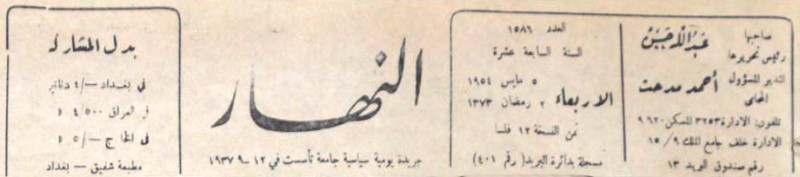 صاحبها
رئيس تحريرها
عبد الله حسن
المدير المسؤول
المحامي
أحمد مدحت
تلفون: الادارة ٣٢٥٣ المسكن ٩٦٢٠
الادارة خلف جامع الملك ١٥/٩
رقم صندوق البريد ١٣
العدد ١٥٨٦
السنة السابعة عشرة
الاربعاء
٥ مايس ١٩٥٤
٢ رمضان ١٣٧٣
ثمن النسخة ١٢ فلسا
مسجلة بدائرة البريد (رقم ٤٠١)
النهار
جريدة يومية سياسية جامعة تأسست في ١٢-٩-١٩٣٧
بدل المشاركة
في بغداد -/٤ دنانير
في العراق ٤/٥٠٠ »
في الخارج -/٥ »
مطبعة شفيق - بغداد